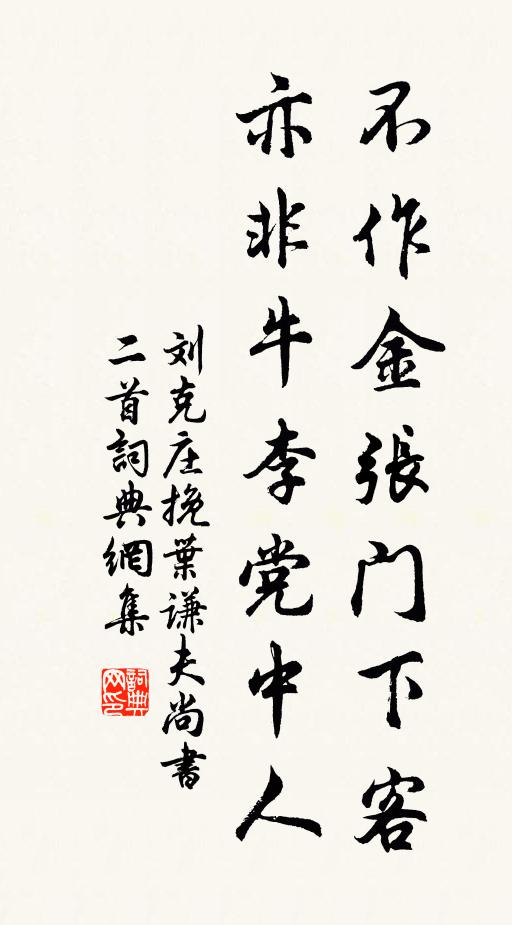 不作金張门下客
亦非牛李党中人
刘克庄挽葉谦夫尚書
二首詞典網集
詞典
网印